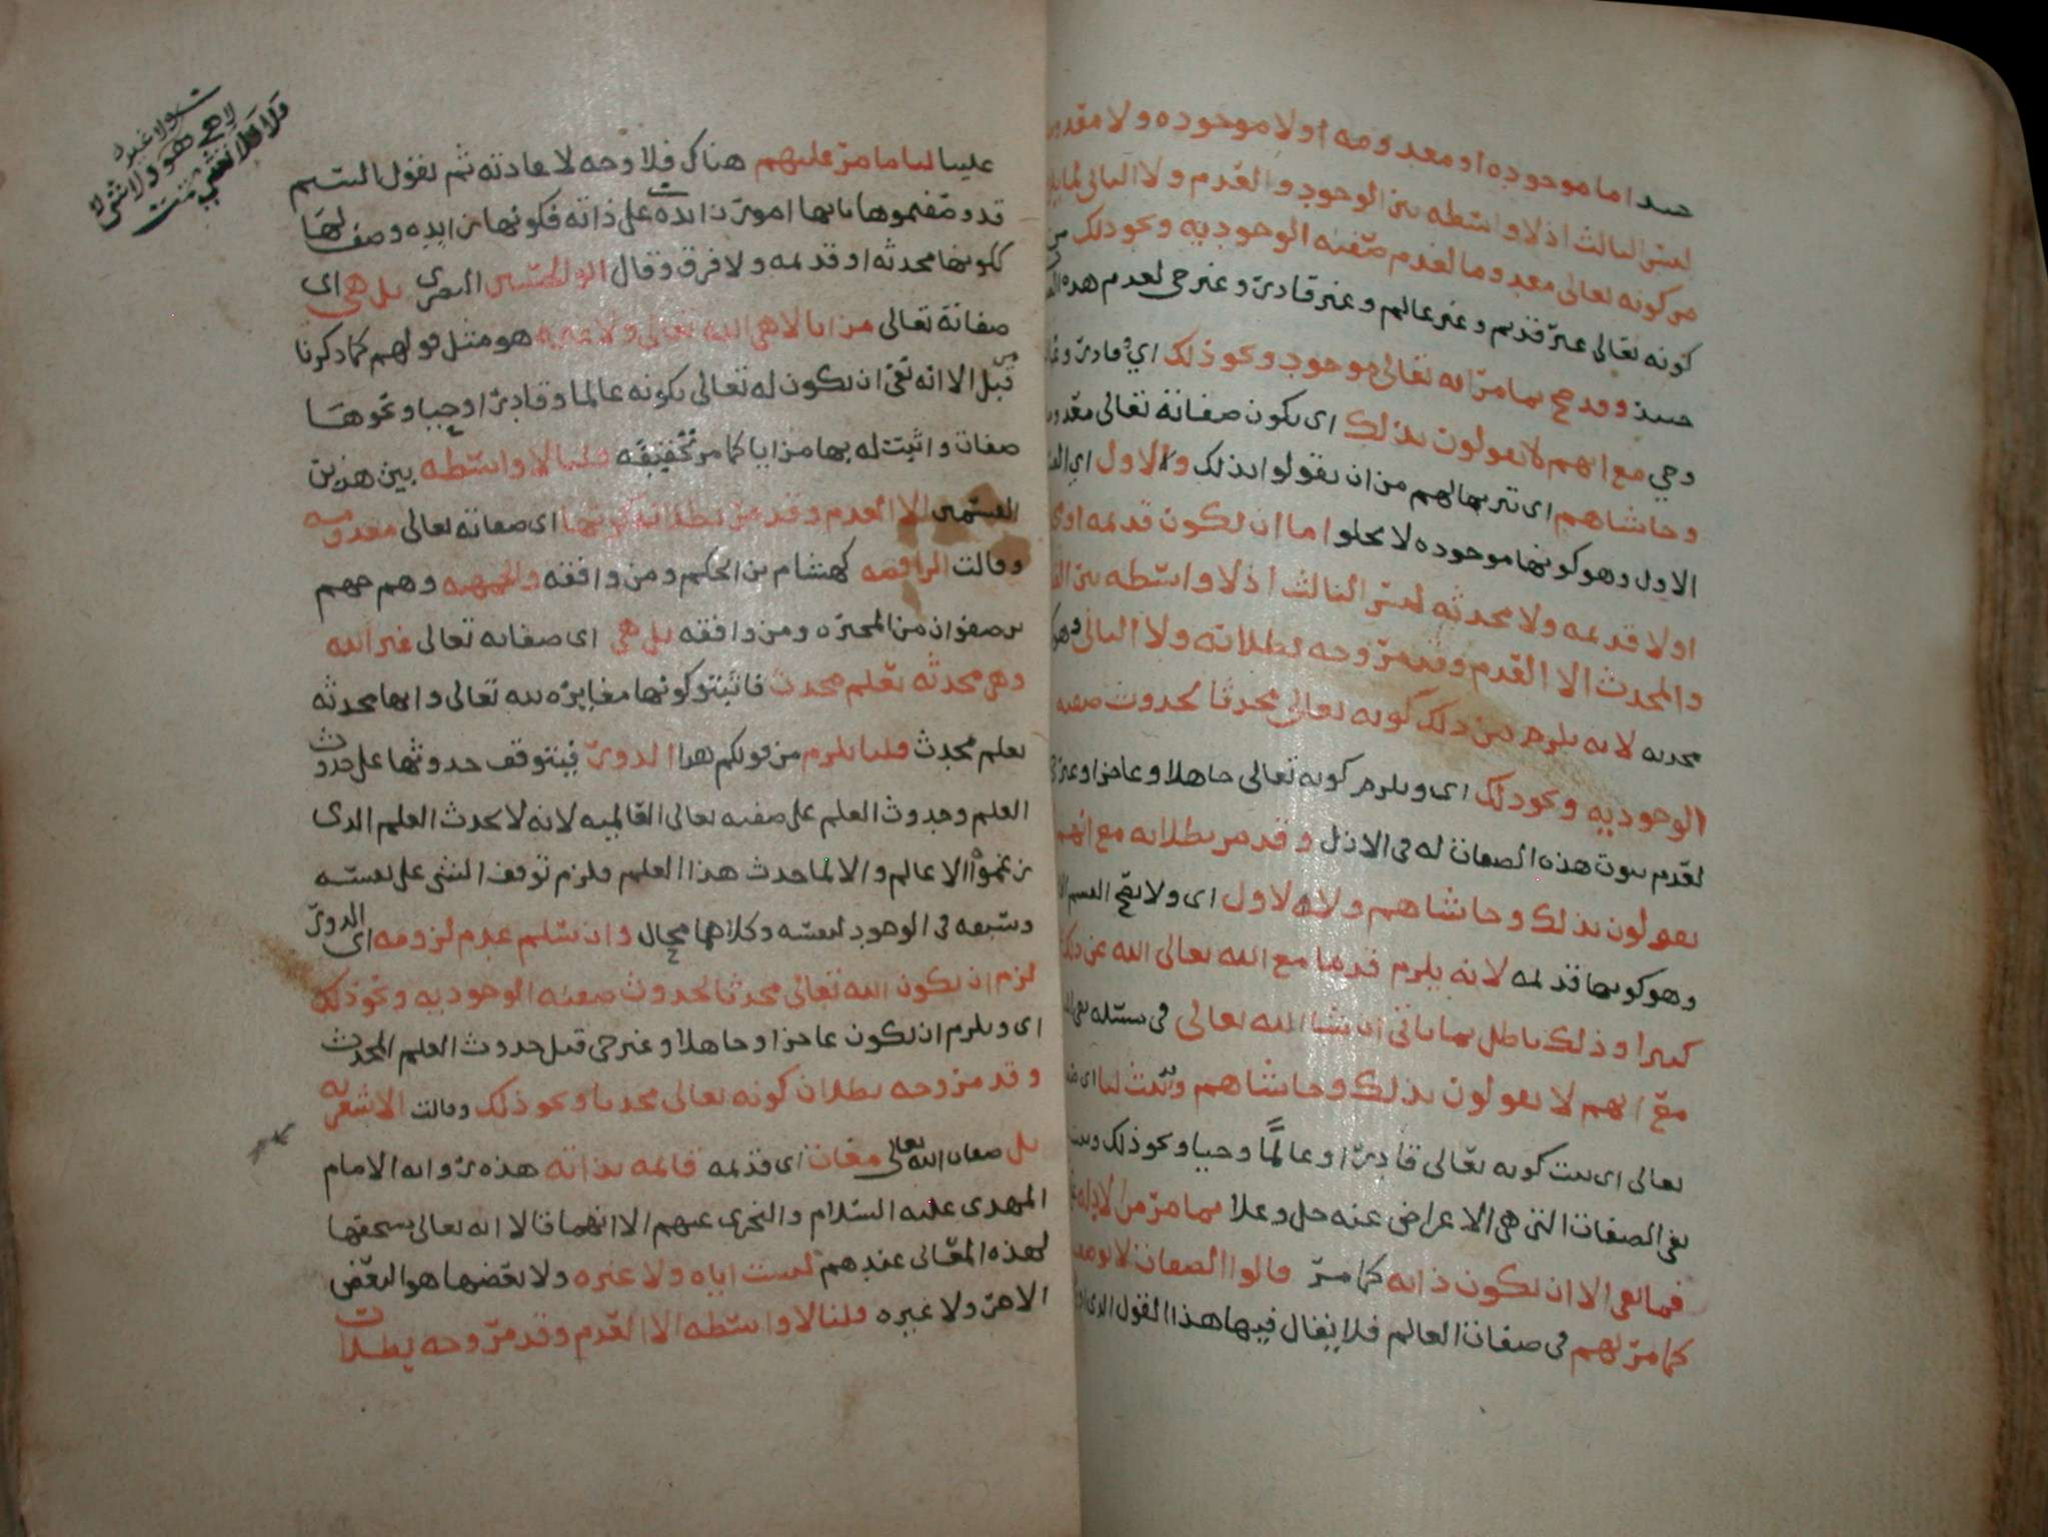 حينئذ اما موجوده او معدومه او لا موجوده ولا معدومه
ليس الثالث اذ لا واسطه بين الوجود والعدم ولا الثاني لما يلزم
من كونه تعالى معدوما لعدم صفته الوجوديه ونحو ذلك من
كونه تعالى غير قديم وغير عالم وغير قادر وغير حي لعدم هذه
حينئذ وقد صح بما مر انه تعالى موجود ونحو ذلك اي قادر
وحي مع انهم لا يقولون بذلك اى بكون صفاته تعالى معدومه
وحاشاهم اى تنزيها لهم من ان يقولوا بذلك ولا الاول اي
الاول وهو كونها موجوده لا يخلو اما ان تكون قديمه او
او لا قديمه ولا محدثه ليس الثالث اذ لا واسطه بين
والمحدث الا العدم وقد مر وجه بطلانه ولا الثاني وهو
محدثه لانه يلزم من ذلك كونه تعالى محدثا لحدوث صفته
الوجوديه ونحو ذلك اى ويلزم كونه تعالى جاهلا وعاجزا وغير
لعدم ثبوت هذه الصفات له في الازل وقد مر بطلانه مع انهم
يقولون بذلك وحاشاهم ولا الاول اى ولا يصح القسم
وهو كونها قديمه لانه يلزم قدما مع الله تعالى الله عن ذلك
كبيرا وذلك باطل بما ياتي ان شا الله تعالى في مسئله
مع انهم لا يقولون بذلك وحاشاهم وثبت لنا اى
تعالى اى ثبت كونه تعالى قادرا وعالما وحيا ونحو ذلك وثبت
نفي الصفات التي هي الاعراض عنه جل وعلا بما مر من الادله
فما بقي الا ان تكون ذاته كما مر قالوا الصفات لا توصف
كما مر لهم في صفات العالم فلا يقال فيها هذا القول الذي
علينا لنا ما مر عليهم هناك فلا وجه لاعادته ثم نقول التسم
قد وصفتموها بانها امور زايده على ذاته فكونها زايده وصف لها
ككونها محدثه او قديمه ولا فرق وقال ابو الحسين البصري بل هي اى
صفاته تعالى مزايا لا هي الله تعالى ولا غيره هو مثل قولهم كما ذكرنا
من قبل الا انه نفى ان يكون له تعالى بكونه عالما وقادرا وحيا ونحوها
صفات واثبت له بها مزايا كما مر تحقيقه قلنا لا واسطه بين هذين
القسمين الا العدم وقد مر بطلانه كونها اى صفاته تعالى معدومه
وقالت الرافضه كهشام بن الحكم ومن وافقه والجهميه وهم جهم
بن صفوان من المجبره ومن وافقه بل هي اى صفاته تعالى غير الله
وهي محدثه بعلم محدث فاثبتو كونها مغايره لله تعالى وانها محدثه
بعلم محدث قلنا يلزم من قولكم هذا الدور فيتوقف حدوثها على حدوث
العلم وحدوث العلم على صفته تعالى العالميه لانه لا يحدث العلم الذي
زعموا الا عالم والا لما حدث هذا العلم فلزم توقف الشى على نفسه
وسبقه في الوجود لنفسه وكلاهما محال وان سلم عدم لزومه اى الدور
لزم ان يكون الله تعالى محدثا لحدوث صفته الوجوديه ونحو ذلك
اى ويلزم ان يكون عاجزا وجاهلا وغير حي قبل حدوث العلم المحدث
وقد مر وجه بطلان كونه تعالى محدثا ونحو ذلك وقالت الاشعريه
بل صفات الله تعالى معان اى قديمه قائمه بذاته هذه روايه الامام
المهدي عليه السلام والنجري عنهم الا انهما قالا انه تعالى يستحقها
لهذه المعاني عندهم ليست اياه ولا غيره ولا بعضها هو البعض
الاخر ولا غيره قلنا لا واسطه الا العدم وقد مر وجه بطلان